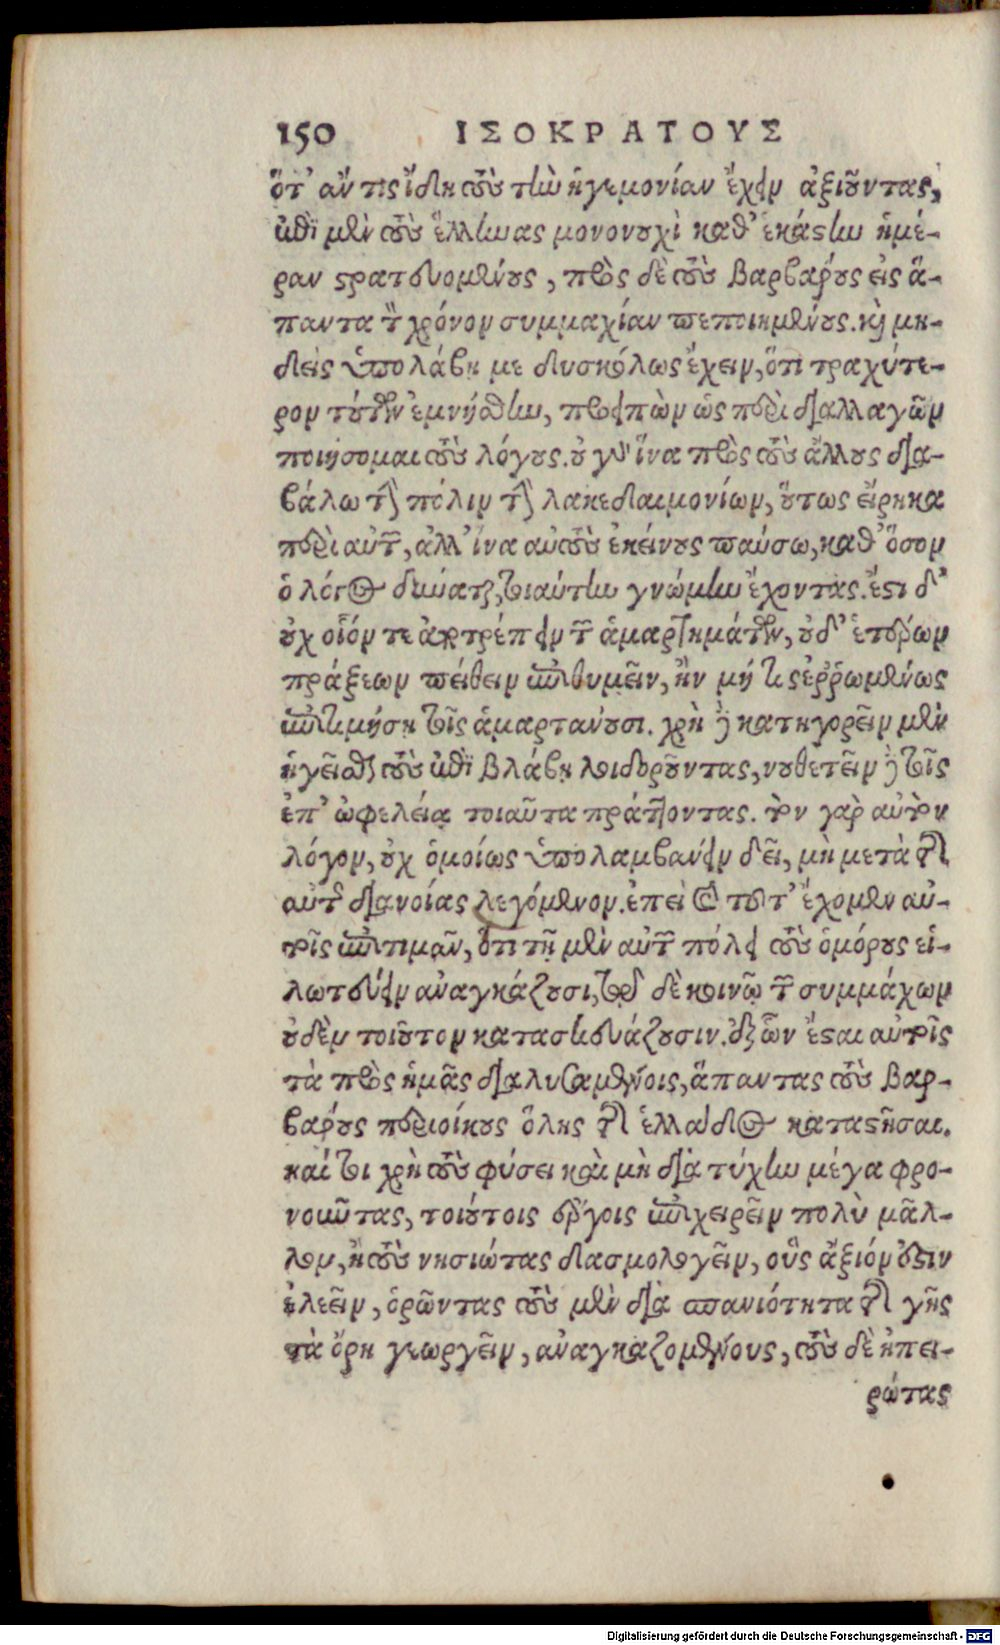 150 ΙΣΟΚΡΑΤΟΥΣ
ὅτ' ἄν τις ἴδῃ τοὺς τὴν ἡγεμονίαν ἔχειν ἀξιοῦντας,
ἐπὶ μὲν τοὺς ἕλληνας μονονουχὶ καθ' ἑκάστην ἡμέ-
ραν στρατευομένους, πρὸς δὲ τοὺς βαρβάρους εἰς ἅ-
παντα τὸν χρόνον συμμαχίαν πεποιημένους. καὶ μη-
δεὶς ὑπολάβῃ με δυσκόλως ἔχειν, ὅτι τραχύτε-
ρον τούτων ἐμνήσθην, προειπὼν ὡς περὶ διαλλαγῶν
ποιήσομαι τοὺς λόγους. οὐ γὰρ ἵνα πρὸς τοὺς ἄλλους δια-
βάλω τὴν πόλιν τὴν λακεδαιμονίων, οὕτως εἴρηκα
περὶ αὐτῶν, ἀλλ' ἵνα αὐτοὺς ἐκείνους παύσω, καθ' ὅσον
ὁ λόγος δύναται, τοιαύτην γνώμην ἔχοντας. ἔστι δ'
οὐχ οἷόν τε ἀποτρέπειν τῶν ἁμαρτημάτων, οὐδ' ἑτέρων
πράξεων πείθειν ἐπιθυμεῖν, ἢν μή τις ἐῤῥωμένως
ἐπιτιμήσῃ τοῖς ἁμαρτάνουσι. χρὴ δὲ κατηγορεῖν μὲν
ἡγεῖσθαι τοὺς ἐπὶ βλάβῃ λοιδοροῦντας, νουθετεῖν δὲ τοῖς
ἐπ' ὠφελείᾳ τοιαῦτα πράττοντας. τὸν γὰρ αὐτὸν
λόγον, οὐχ ὁμοίως ὑπολαμβάνειν δεῖ, μὴ μετὰ τῆς
αὐτῆς διανοίας λεγόμενον. ἐπεὶ καὶ τοῦτ' ἔχομεν αὐ-
τοῖς ἐπιτιμᾶν, ὅτι τῇ μὲν αὑτῶν πόλει τοὺς ὁμόρους εἱ-
λωτεύειν ἀναγκάζουσι, τῷ δὲ κοινῷ τῶν συμμάχων
οὐδὲν τοιοῦτον κατασκευάζουσιν. ἐξ ὧν ἔσται αὐτοῖς
τὰ πρὸς ἡμᾶς διαλυσαμένοις, ἅπαντας τοὺς βαρ-
βάρους περιοίκους ὅλης τῆς ἑλλάδος καταστῆσαι.
καί τοι χρὴ τοὺς φύσει καὶ μὴ διὰ τύχην μέγα φρο-
νοῦντας, τοιούτοις ἔργοις ἐπιχειρεῖν πολὺ μᾶλ-
λον, ἢ τοὺς νησιώτας δασμολογεῖν, οὓς ἄξιόν ἐστιν
ἐλεεῖν, ὁρῶντας τοὺς μὲν διὰ σπανιότητα τῆς γῆς
τὰ ὄρη γεωργεῖν, ἀναγκαζομένους, τοὺς δὲ ἠπει-
ρώτας
Digitalisierung gefördert durch die Deutsche Forschungsgemeinschaft - DFG